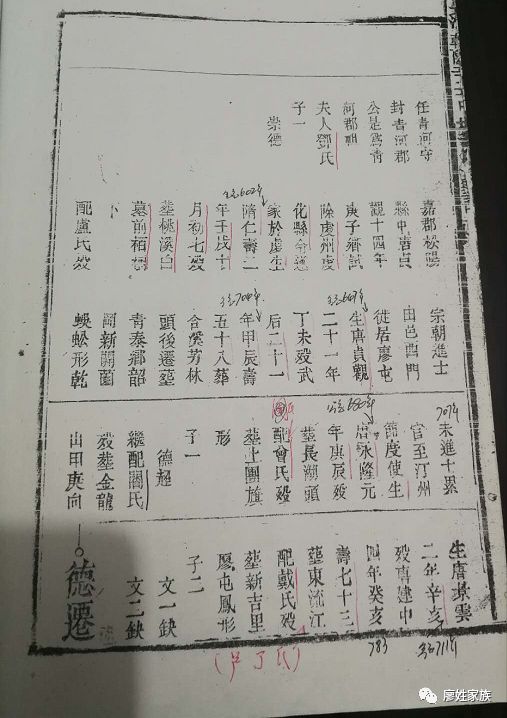 任青河守
封青河郡
公是為青
河郡祖
夫人鄧氏
子一
崇德
嘉郡松陽
縣中唐貞
觀十四年
庚子鄉試
除虔州虔
化縣令遂
家於虔生
隋仁壽二
年壬戌十
月初七歿
葬桃溪白
墓前栢
配盧氏歿
宗朝進士
由邑西門
徙居廖屯
生唐貞觀
二十一年
丁未歿武
后二十一
年甲辰壽
五十八葬
合溪芳林
頭後遷葬
青泰鄉韶
新開窗
蜈蚣形乾
707年
未進士累
官至汀州
節度使生
唐永隆元
年庚辰歿
葬長湖頭
配曾氏歿
葬上團旗
形
子一
德超
繼配闕氏
歿葬金龍
山田庚向
生唐景雲
二年辛亥
歿唐建中
四年癸亥
783
壽七十三
葬東流江
配戴氏歿
葬新吉里
廖屯鳳形
子二
文一缺
文二缺
德遷
廖姓家族